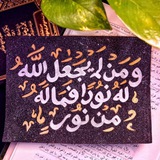 وَمَن لَّمْ يَجْعَلِ اللَّهُ
لَهُ نُورًا فَمَا لَهُ
مِن نُّورٍ